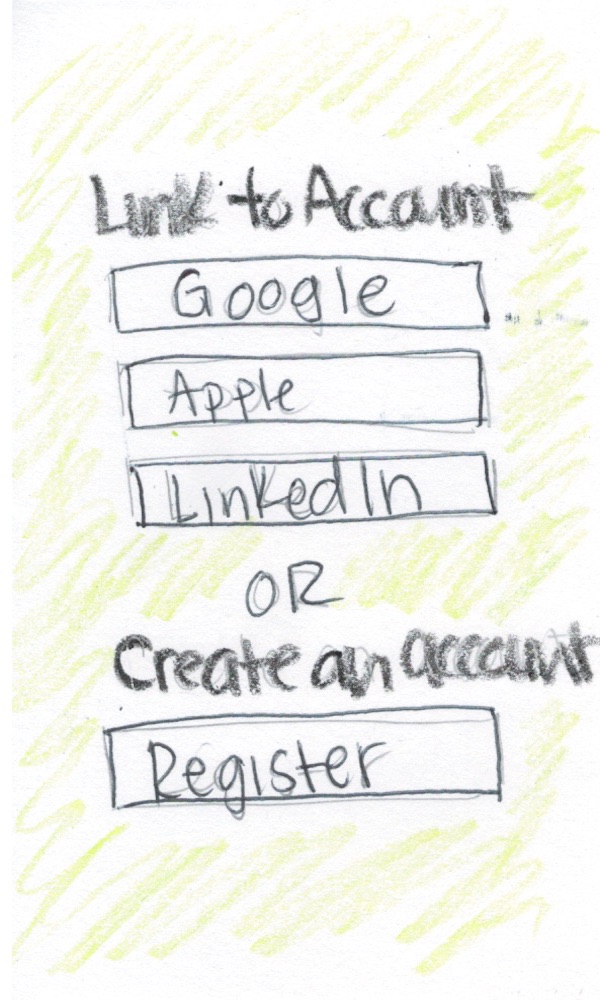 Link to Account
Google
Apple
LinkedIn
OR
Create an account
Register